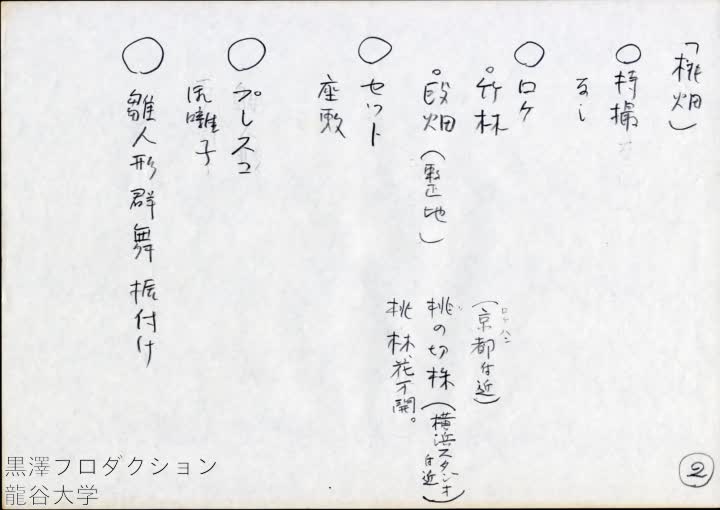 「桃畑」
○特撮
なし
○ロケ
。竹林
(京都付近)
ロケハン
。段畑(整地)
桃の切株(横浜スタジオ付近)
桃林花万開。
○セット
座敷
○プレスコ
囃子
○雛人形群舞振付け
②
黒澤プロダクション
龍谷大学